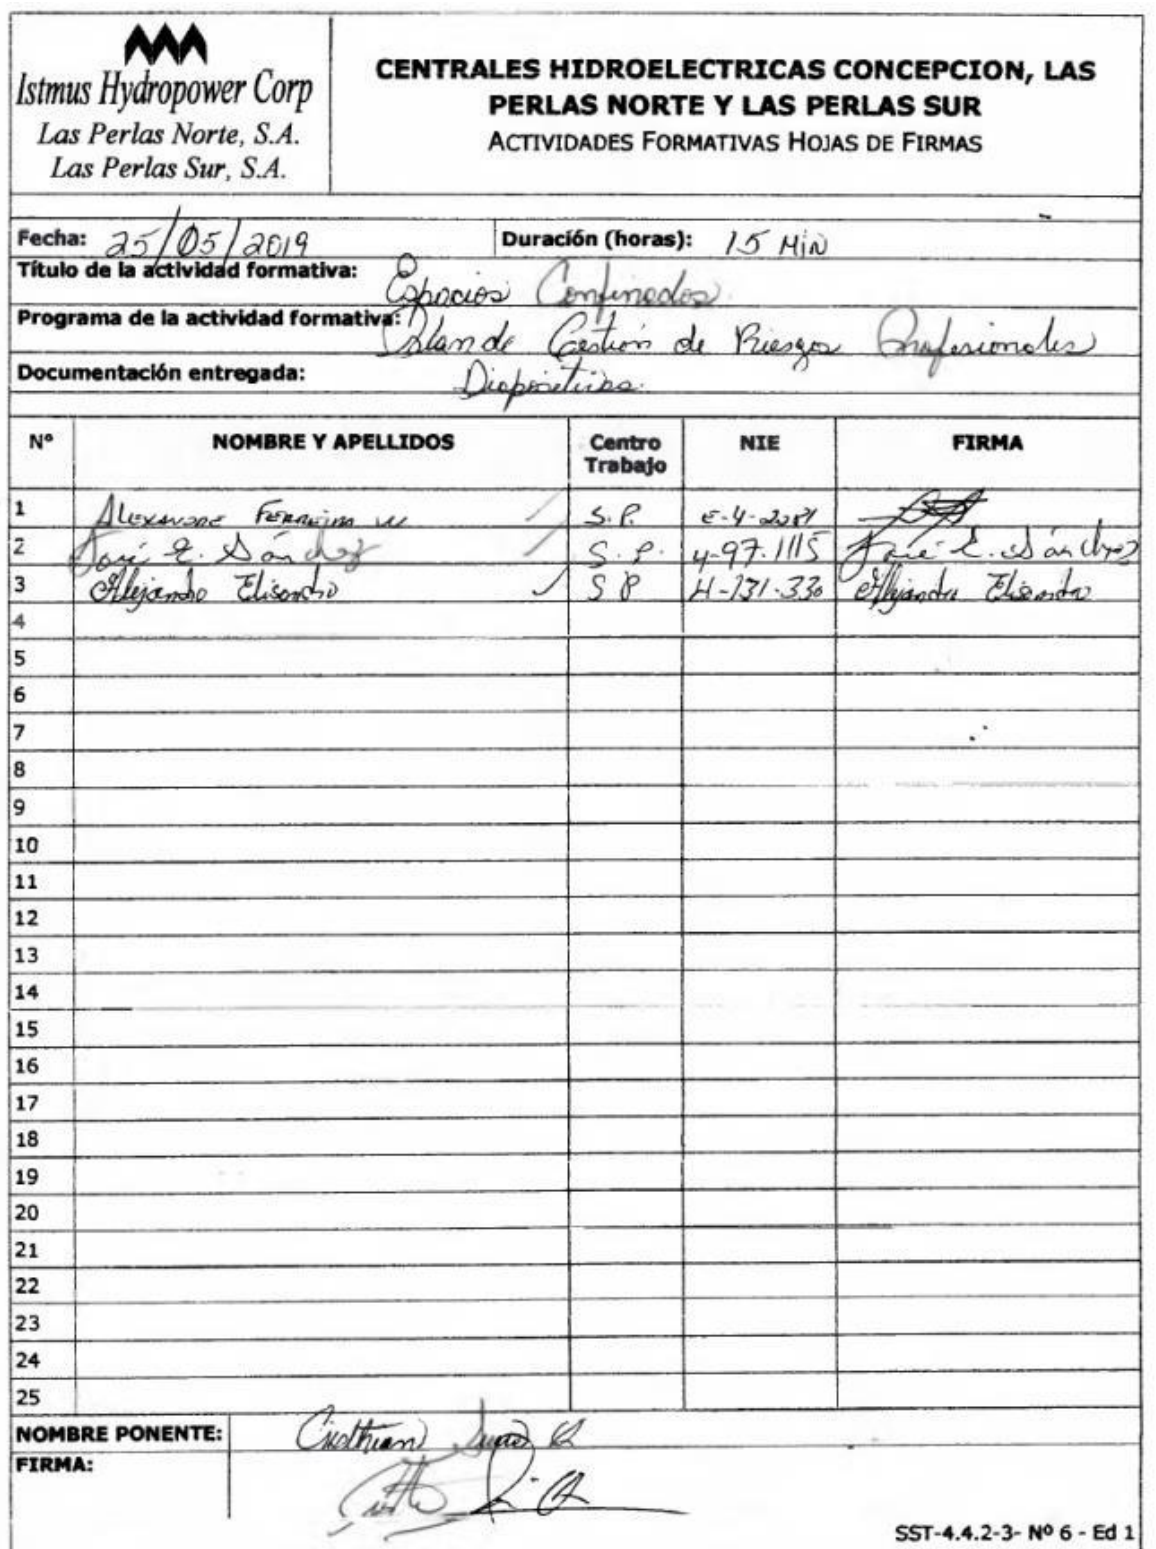 Istmus Hydropower Corp
Las Perlas Norte, S.A.
Las Perlas Sur, S.A.
CENTRALES HIDROELECTRICAS CONCEPCION, LAS
PERLAS NORTE Y LAS PERLAS SUR
ACTIVIDADES FORMATIVAS HOJAS DE FIRMAS
Fecha: 25/05/2019 Duración (horas): 15 Min
Título de la actividad formativa: Espacios Confinados
Programa de la actividad formativa: Plan de Gestión de Riesgos Profesionales
Documentación entregada: Diapositivas
Nº NOMBRE Y APELLIDOS Centro Trabajo NIE FIRMA
1 ALEXANDRE FERREIRA S.P. E-4-2081
2 José E. Sánchez S.P. 4-97-1115 José E. Sánchez
3 Alejandro Elisondro S P 4-131-330 Alejandro Elisondro
4
5
6
7
8
9
10
11
12
13
14
15
16
17
18
19
20
21
22
23
24
25
NOMBRE PONENTE: Cristhian
FIRMA:
SST-4.4.2-3- Nº 6 - Ed 1